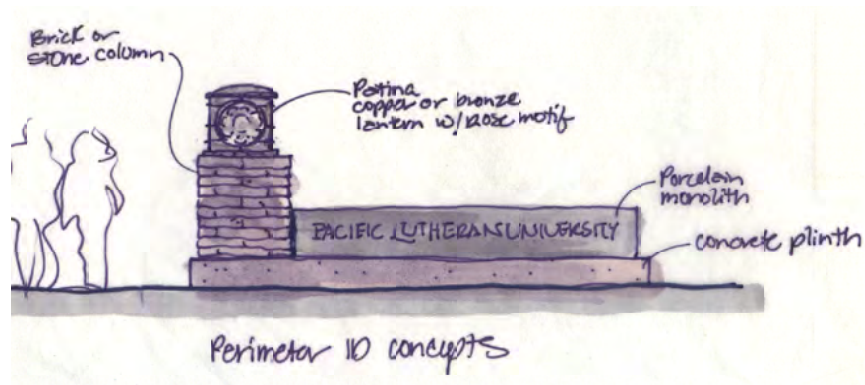 Brick or
stone column
Patina
copper or bronze
lantern w/ Rose motif
Porcelain
monolith
PACIFIC LUTHERAN UNIVERSITY
concrete plinth
Perimeter ID concepts